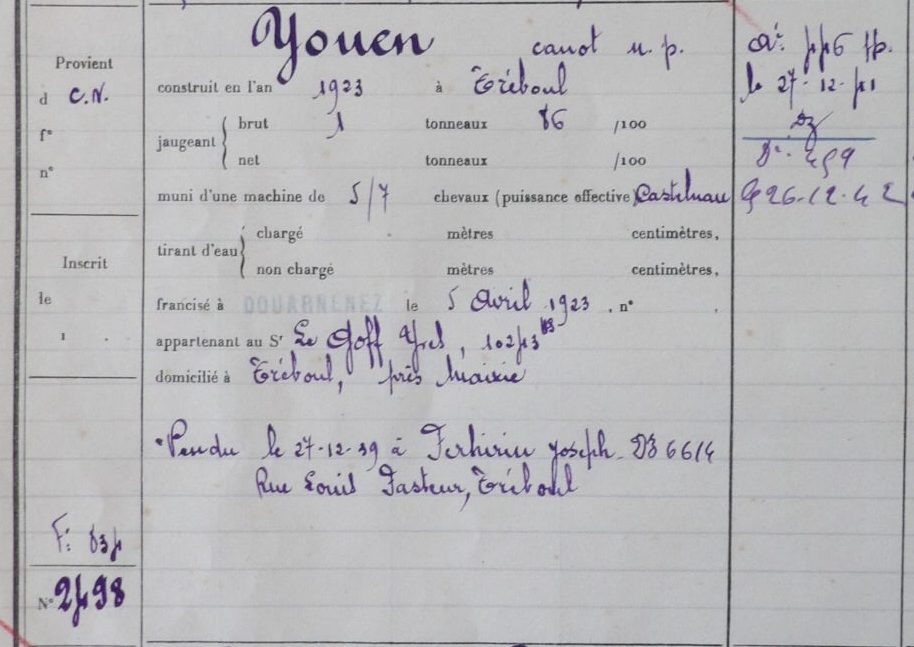 Youen canot m. p.
Provient
d C.N.
f°
n°
Inscrit
le
F:
N° 2498
construit en l'an 1923 à Tréboul
jaugeant { brut 1 tonneaux 86 /100
net tonneaux /100
muni d'une machine de 5/7 chevaux (puissance effective) Castelnau
tirant d'eau { chargé mètres centimètres,
non chargé mètres centimètres,
francisé à DOUARNENEZ le 5 Avril 1923 , n° .
appartenant au Sr Le Goff Yves,
domicilié à Tréboul, près Mairie
Vendu le 27-12-39 à Joseph DZ 6614
Rue Louis Pasteur, Tréboul
le 27-12-41
Dz
459
26-12-42